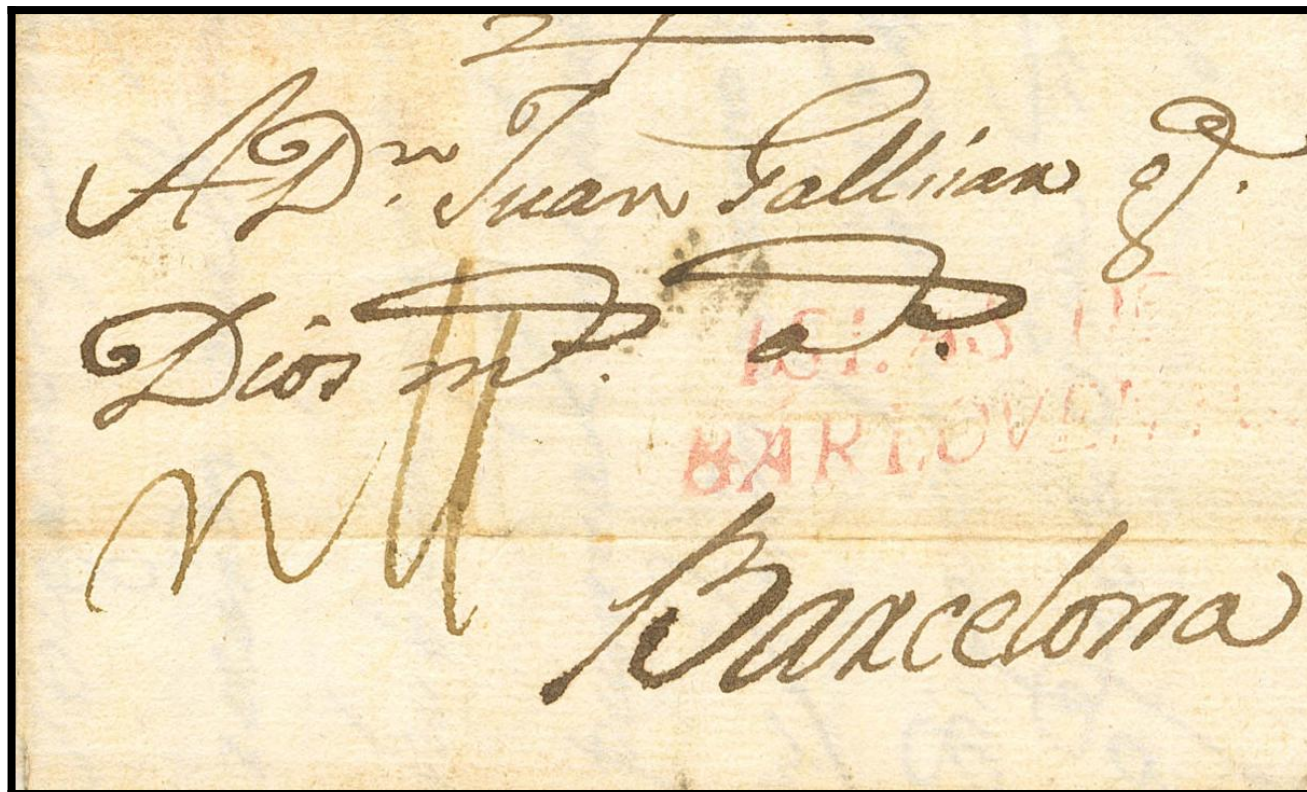 A Dn. Juan Gallisan gd.
Dios ms. as.
ISLAS DE
BARLOVENTO
Barcelona